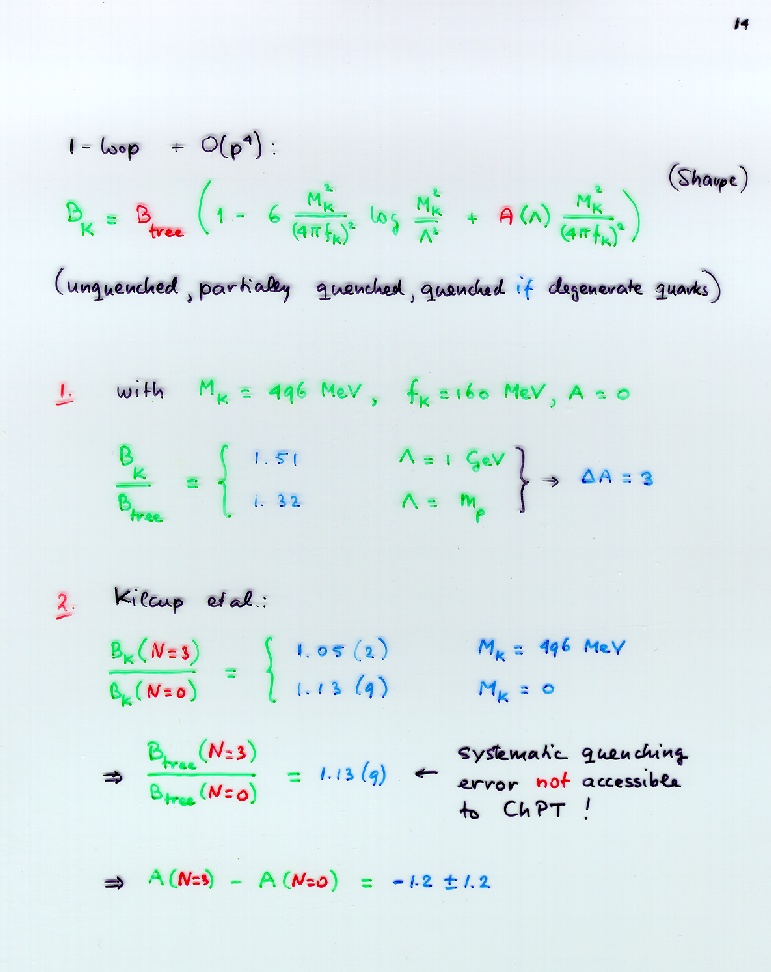 14
1-loop + O(p⁴):
(Sharpe)
B_K = B_tree (1 - 6 M_K²/(4πf_K)² log M_K²/Λ² + A(Λ) M_K²/(4πf_K)²)
(unquenched, partially quenched, quenched if degenerate quarks)
1. with M_K = 496 MeV, f_K = 160 MeV, A = 0
B_K/B_tree = { 1.51 Λ = 1 GeV
1.32 Λ = m_ρ } → ΔA = 3
2. Kilcup et al.:
B_K(N=3)/B_K(N=0) = { 1.05 (2) M_K = 496 MeV
1.13 (9) M_K = 0
⇒ B_tree(N=3)/B_tree(N=0) = 1.13(9) ← systematic quenching
error not accessible
to ChPT !
⇒ A(N=3) - A(N=0) = -1.2 ± 1.2